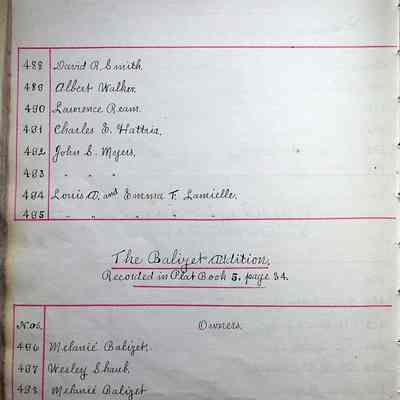 488 David R. Smith.
489 Albert Walker.
490 Lawrence Ream.
491 Charles E. Hattria.
492 John S. Meyers.
493 " " "
494 Louis D. and Emma F. Lamielle.
495 " " " " " "
The Balizet Addition.
Recorded in Plat Book 5. page 34.
Nos. Owners.
496 Melanié Balizet.
497 Wesley Shaub.
498 Melanié Balizet